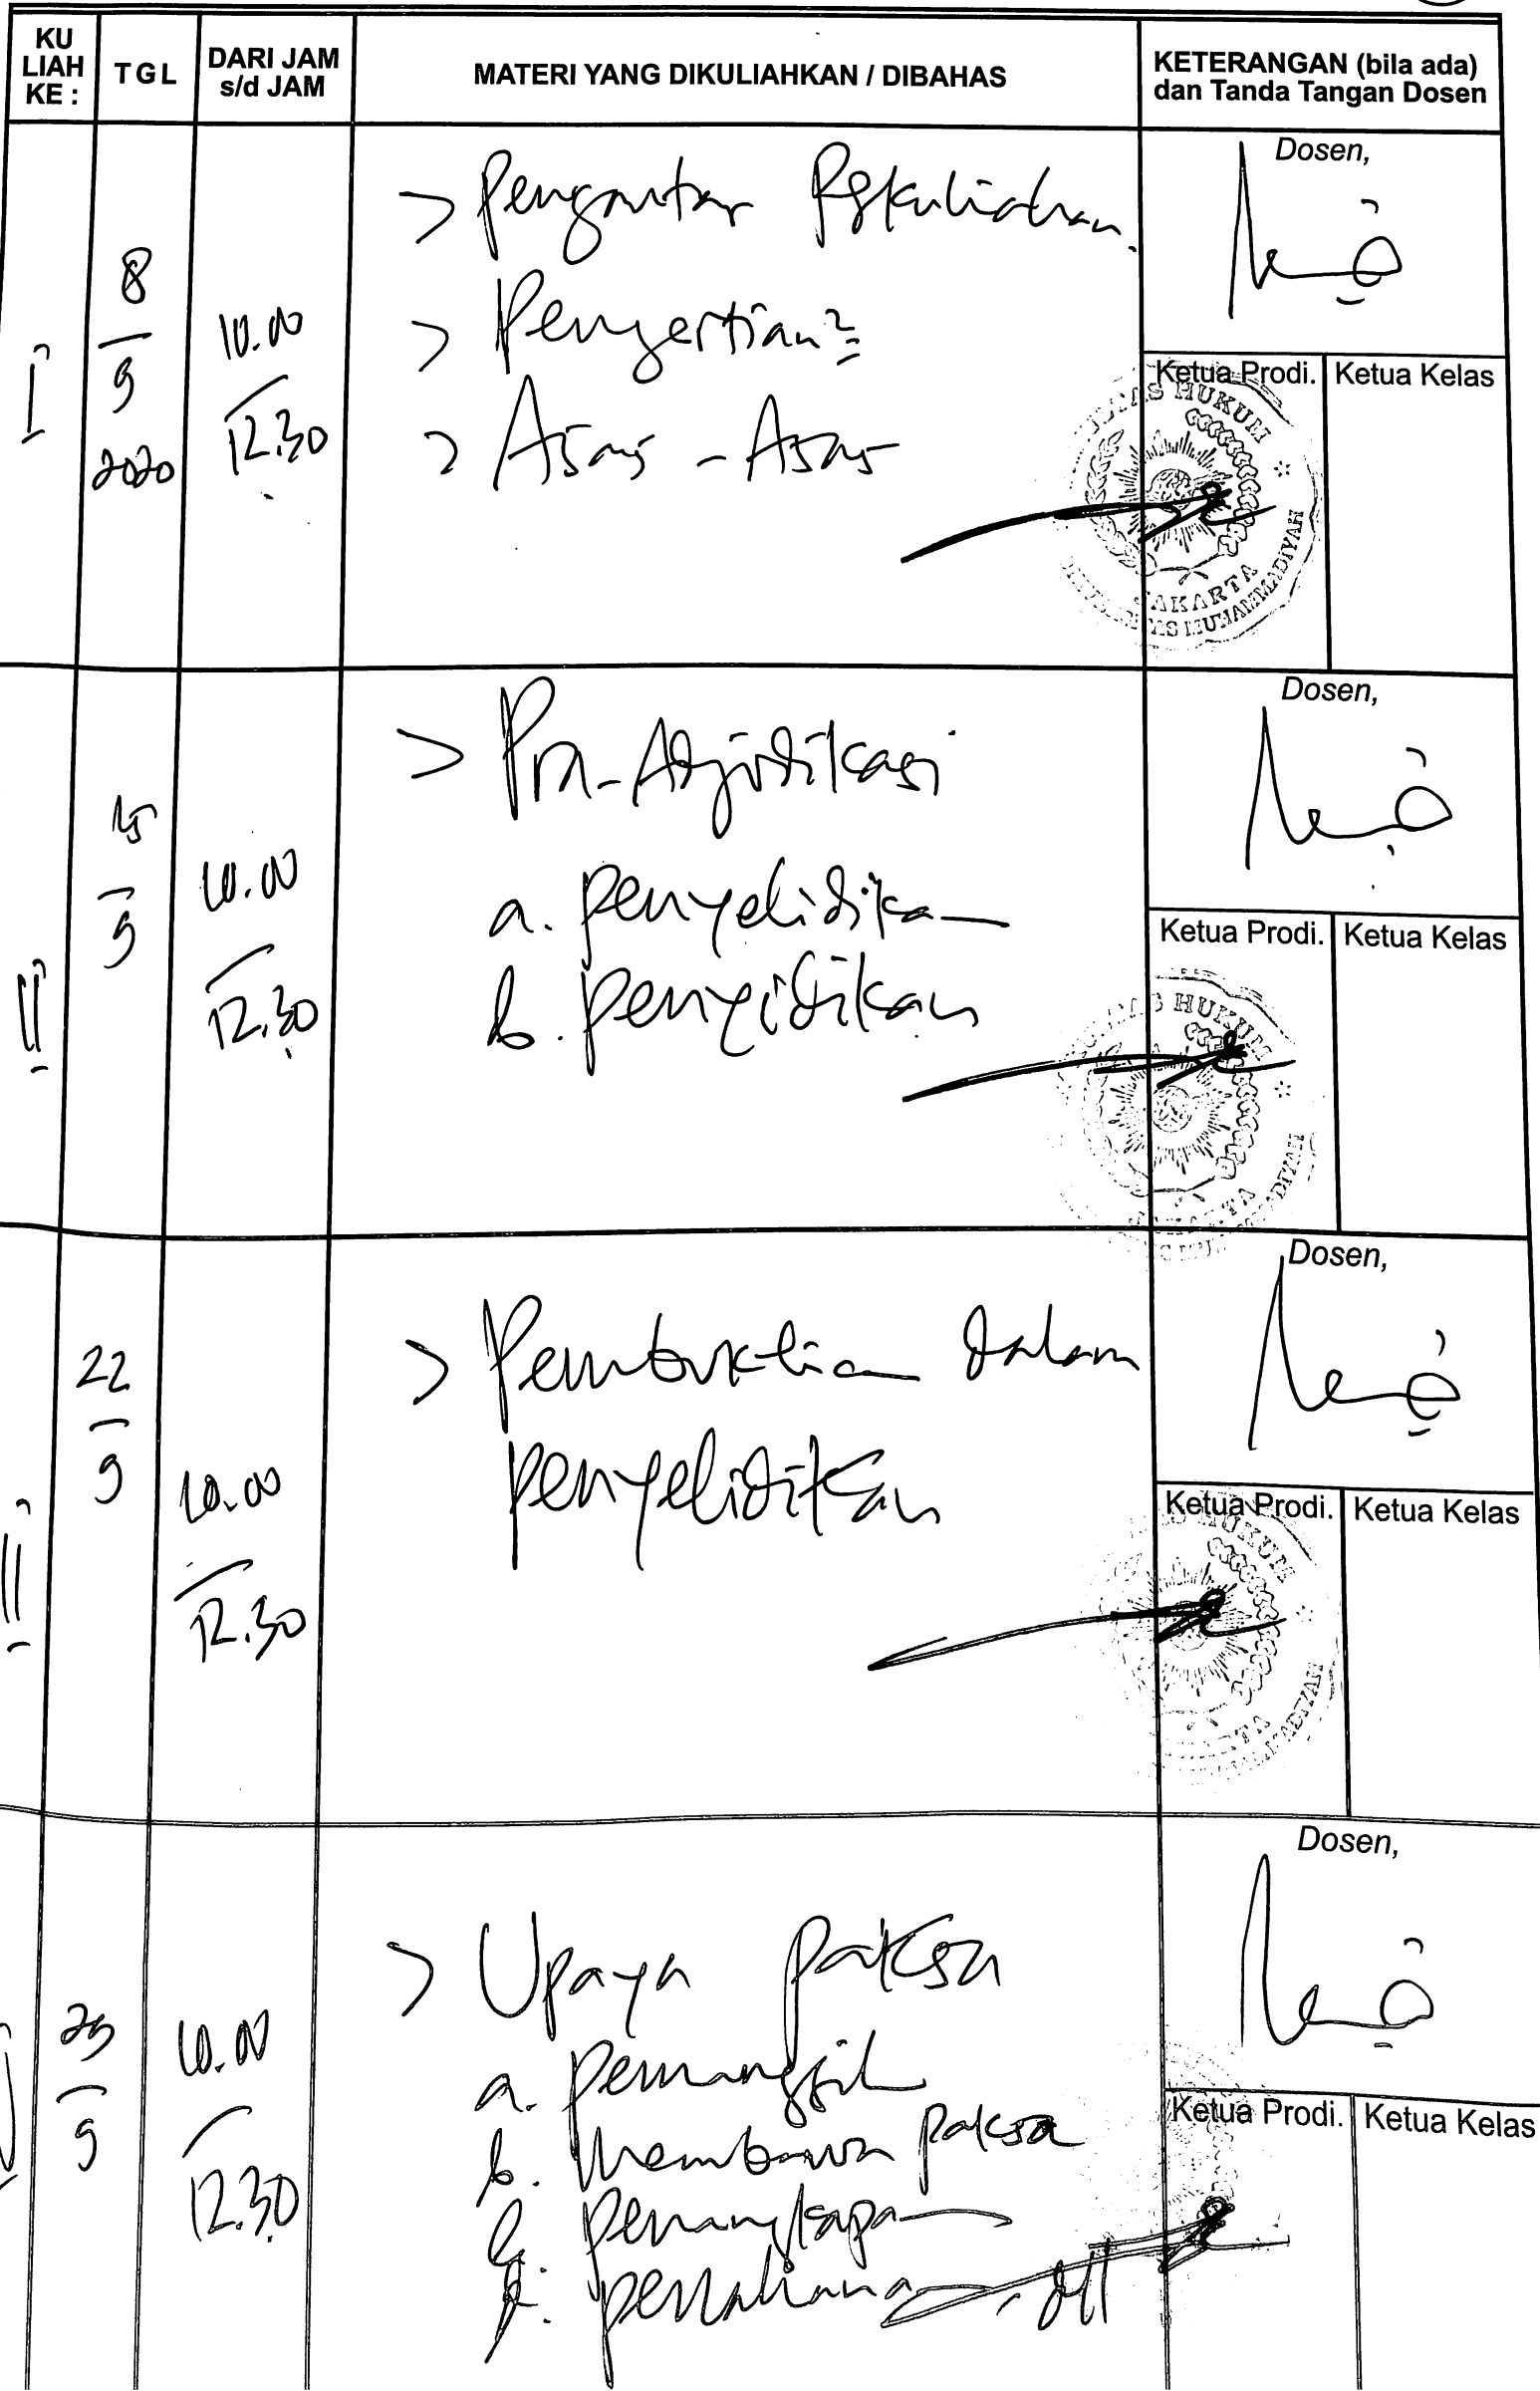 KU
LIAH
KE :
TGL
DARI JAM
s/d JAM
MATERI YANG DIKULIAHKAN / DIBAHAS
KETERANGAN (bila ada)
dan Tanda Tangan Dosen
I
8
9
2020
10.00
12.30
> Pengantar Perkuliahan.
> Pengertian2
> Asas - Asas
Dosen,
Ketua Prodi.
Ketua Kelas
HUKUM
JAKARTA
MUHAMMADIYAH
II
15
9
10.00
12.30
> Pra-Adjudikasi
a. penyelidikan
b. penyidikan
Dosen,
Ketua Prodi.
Ketua Kelas
HUKUM
III
22
9
10.00
12.30
> Pembuktian dalam
penyelidikan
Dosen,
Ketua Prodi.
Ketua Kelas
HUKUM
29
9
10.00
12.30
> Upaya paksa
a. pemanggil
b. Membawa paksa
c. penangkapan
d. penahanan, dll
Dosen,
Ketua Prodi.
Ketua Kelas